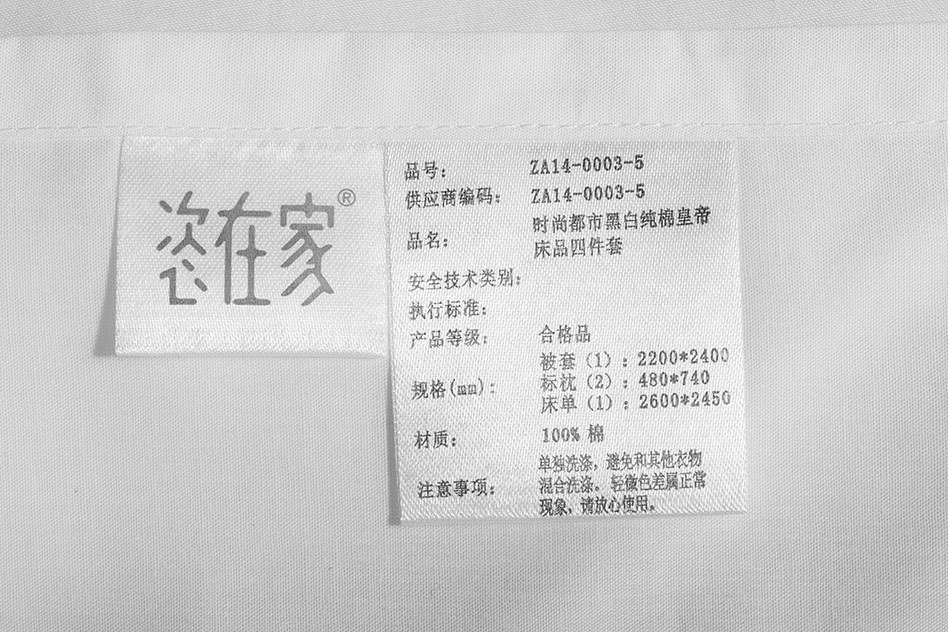 恣在家®
品号： ZA14-0003-5
供应商编码： ZA14-0003-5
品名： 时尚都市黑白纯棉皇帝
床品四件套
安全技术类别：
执行标准：
产品等级： 合格品
规格(mm)： 被套（1）：2200*2400
标枕（2）：480*740
床单（1）：2600*2450
材质： 100% 棉
注意事项： 单独洗涤，避免和其他衣物
混合洗涤。轻微色差属正常
现象，请放心使用。